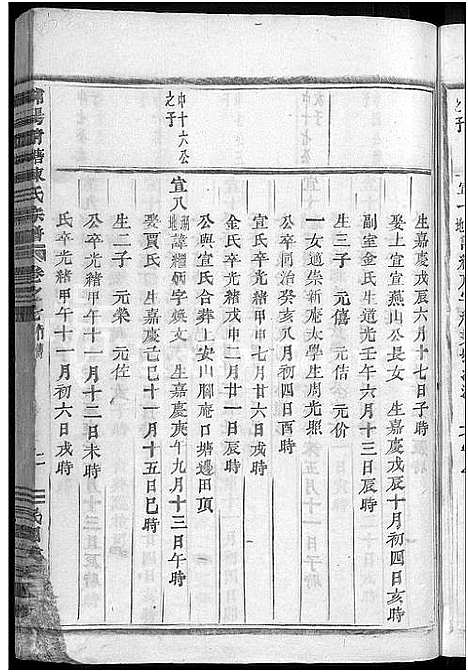 生嘉慶戊辰六月十七日子時
娶上宜宣燕山公長女　生嘉慶戊辰十月初四日亥時
副室金氏生道光壬午六月十三日辰時
生三子　元僖　元佶　元价
一女適崇新庵太學生周光照
公卒同治癸亥八月初四日酉時
宣氏卒光緒甲申七月廿六日戌時
金氏卒光緒戊申二月廿一日辰時
公與宣氏合葬上安山腳庵口塘邊田頂
中十六公之子
宜八　諱繼炳字煥文　生嘉慶庚午九月十三日午時
娶賈氏　生嘉慶亡巳十一月十五日巳時
生二子　元榮　元佐
公卒光緒甲午十一月十二日未時
氏卒光緒甲午十一月初六日戌時
陳氏宗譜 卷之七